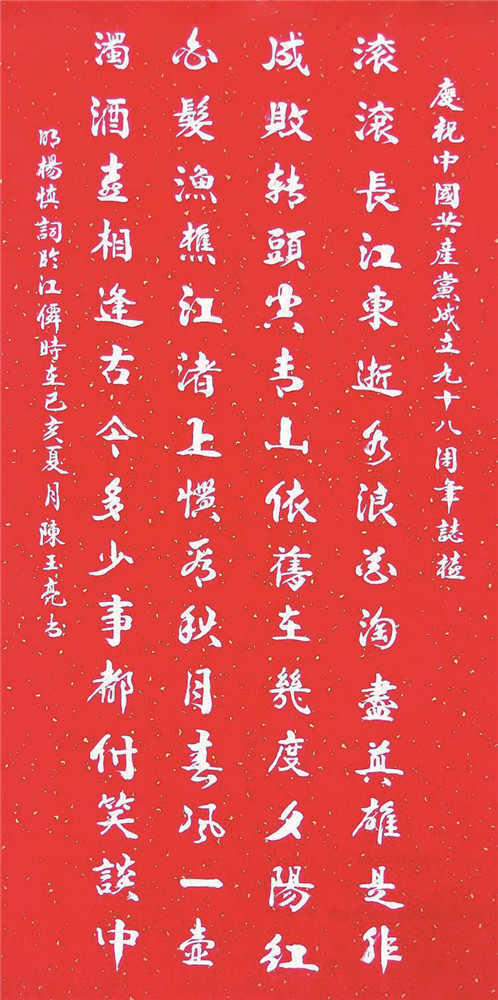 慶祝中國共產黨成立九十八周年誌
滾滾長江東逝水浪花淘盡英雄是非
成敗转頭空青山依舊在幾度夕陽紅
白髮漁樵江渚上慣看秋月春風一壺
濁酒喜相逢古今多少事都付笑談中
明楊慎詞臨江僊時在己亥夏月陳玉亮书